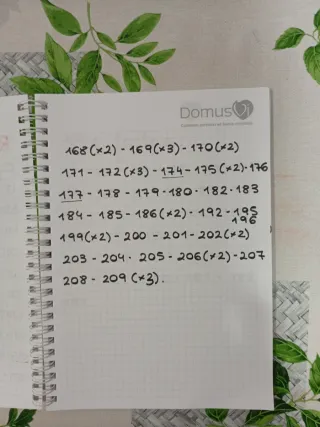 Domus
168(×2) - 169(×3) - 170(×2)
171 - 172(×3) - 174 - 175(×2) - 176
177 - 178 - 179 - 180 - 182 - 183
184 - 185 - 186(×2) - 192 - 195
196
199(×2) - 200 - 201 - 202(×2)
203 - 204 - 205 - 206(×2) - 207
208 - 209 (×3).